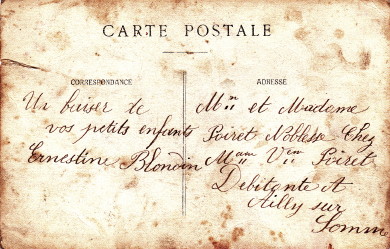 CARTE POSTALE
CORRESPONDANCE
ADRESSE
Un baiser de
vos petits enfants
Ernestine Blondin
Mr et Madame
Poiret Noblesse Chez
Mam Vem Poiret
Debitante A
Ailly sur
Somme